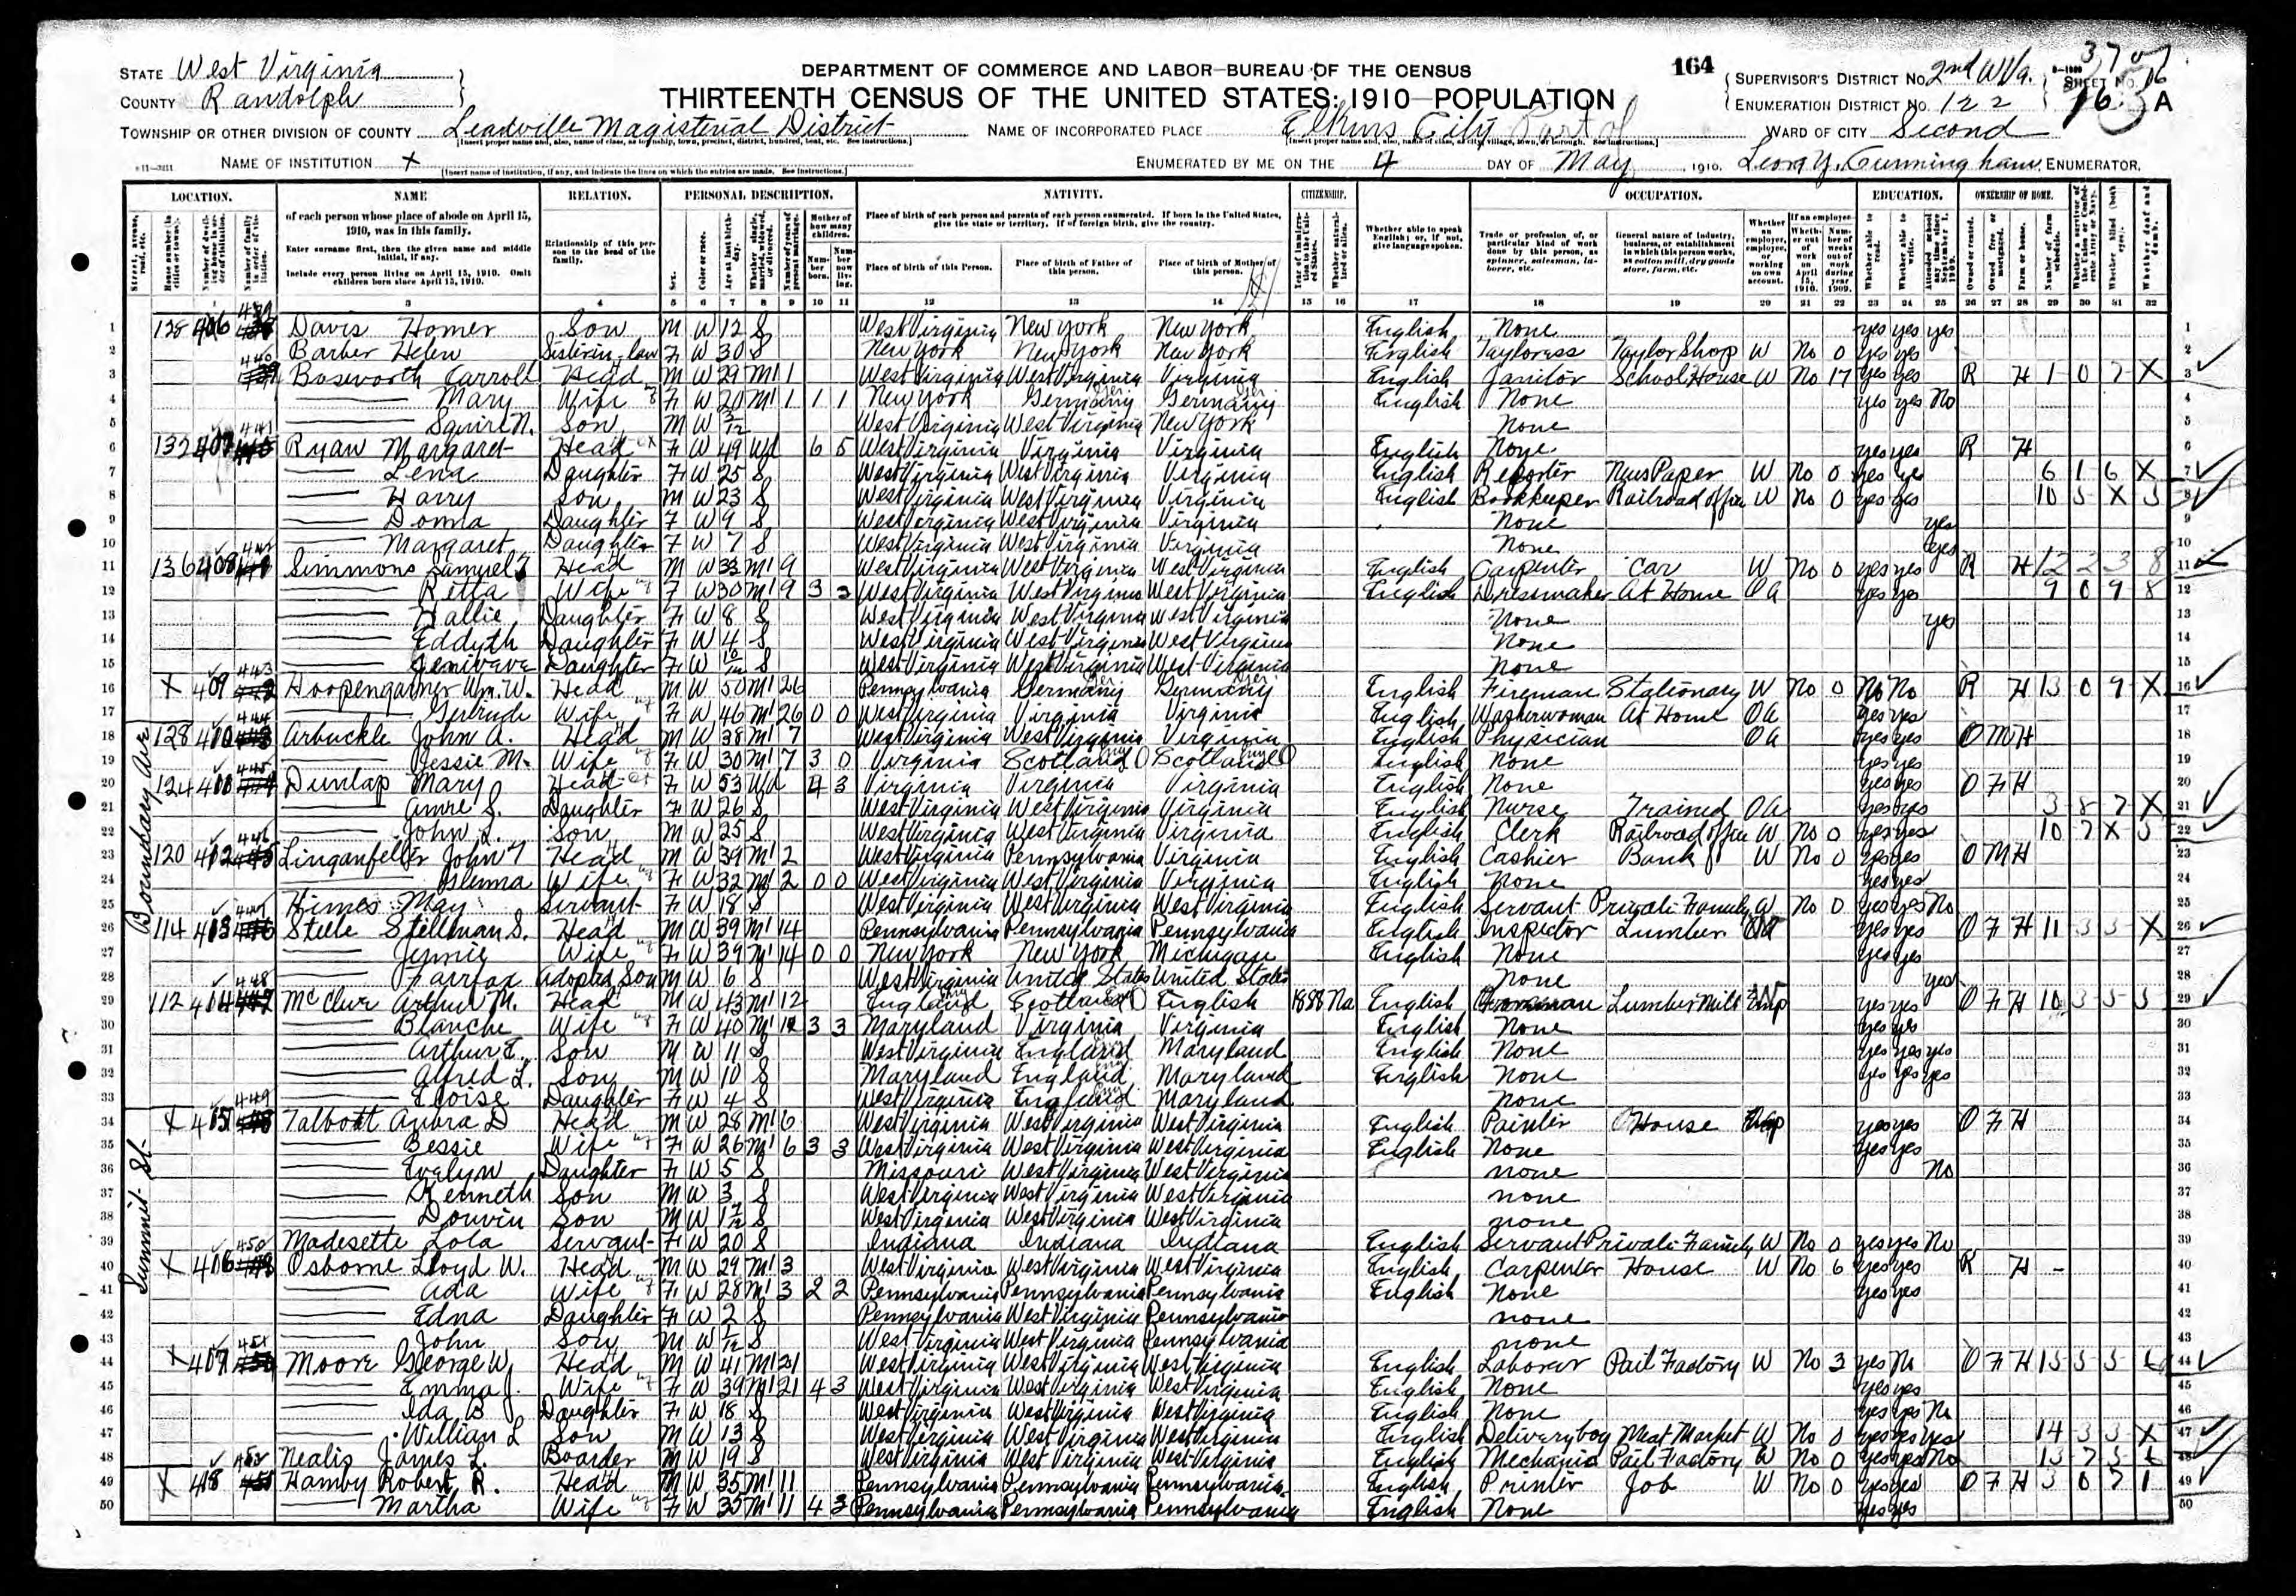 STATE West Virginia
COUNTY Randolph
TOWNSHIP OR OTHER DIVISION OF COUNTY Leadville Magisterial District
DEPARTMENT OF COMMERCE AND LABOR—BUREAU OF THE CENSUS
THIRTEENTH CENSUS OF THE UNITED STATES: 1910—POPULATION
NAME OF INCORPORATED PLACE Elkins City Part of
164
SUPERVISOR'S DISTRICT No. 2nd W Va.
ENUMERATION DISTRICT No. 122
SHEET No. 16 A
WARD OF CITY Second
NAME OF INSTITUTION X
ENUMERATED BY ME ON THE 4 DAY OF May, 1910. Cunningham, ENUMERATOR.
LOCATION. NAME RELATION. PERSONAL DESCRIPTION. NATIVITY. CITIZENSHIP. OCCUPATION. EDUCATION. OWNERSHIP OF HOME.
of each person whose place of abode on April 15, 1910, was in this family.
Enter surname first, then the given name and middle initial, if any.
Include every person living on April 15, 1910. Omit children born since April 15, 1910.
Relationship of this person to the head of the family.
Place of birth of each person and parents of each person enumerated. If born in the United States, give the state or territory. If of foreign birth, give the country.
Place of birth of this Person. Place of birth of Father of this person. Place of birth of Mother of this person.
Whether able to speak English; or, if not, give language spoken.
1 128 406 Davis Homer Son M W 12 S West Virginia New York New York English None yes yes yes
2 440 Barber Helen Sister in law F W 30 S New York New York New York English Tayloress Taylor Shop W No 0 yes yes
3 Bosworth Carroll Head M W 29 M1 1 West Virginia West Virginia Virginia English Janitor School House W No 17 yes yes R H 1 0 7 X
4 Mary Wife F W 20 M1 1 1 1 New York Germany Germany English None yes yes No
5 Squire N. Son M W West Virginia West Virginia New York None
6 132 407 441 Ryan Margaret Head F W 49 Wd 6 5 West Virginia Virginia Virginia English None yes yes R H
7 Lena Daughter F W 25 S West Virginia West Virginia Virginia English Reporter News Paper W No 0 yes yes 6 1 6 X
8 Harry Son M W 23 S West Virginia West Virginia Virginia English Bookkeeper Railroad office W No 0 yes yes 10 5 X 5
9 Donna Daughter F W 9 S West Virginia West Virginia Virginia None yes
10 Margaret Daughter F W 7 S West Virginia West Virginia Virginia None yes
11 136 408 442 Simmons Samuel Head M W 33 M1 9 West Virginia West Virginia West Virginia English Carpenter Car W No 0 yes yes R H 12 2 3 8
12 Retta Wife F W 30 M1 9 3 3 West Virginia West Virginia West Virginia English Dressmaker At Home OA yes yes 9 0 9 8
13 Hallie Daughter F W 8 S West Virginia West Virginia West Virginia None yes
14 Eddyth Daughter F W 4 S West Virginia West Virginia West Virginia None
15 Jenivave Daughter F W 10/12 S West Virginia West Virginia West Virginia None
16 X 409 443 Hoopengarner Wm. W. Head M W 50 M1 26 Pennsylvania Germany Germany English Fireman Stationary W No 0 No No R H 13 0 9 X
17 Gertrude Wife F W 46 M1 26 0 0 West Virginia Virginia Virginia English Washerwoman At Home OA yes yes
Boundary Ave
18 128 410 444 Arbuckle John A. Head M W 38 M1 7 West Virginia West Virginia Virginia English Physician OA yes yes O M H
19 Jessie M. Wife F W 30 M1 7 3 0 Virginia Scotland Scotland English None yes yes
20 124 411 445 Dunlap Mary Head F W 53 Wd 4 3 Virginia Virginia Virginia English None yes yes O F H
21 Anne S. Daughter F W 26 S West Virginia West Virginia Virginia English Nurse Trained OA yes yes 3 8 7 X
22 John L. Son M W 25 S West Virginia West Virginia Virginia English Clerk Railroad office W No 0 yes yes 10 7 X 5
23 120 412 446 Linganfelter John Head M W 39 M1 2 West Virginia Pennsylvania Virginia English Cashier Bank W No 0 yes yes O M H
24 Wife F W 32 M1 2 0 0 West Virginia West Virginia Virginia English None yes yes
25 Himes May Servant F W 18 S West Virginia West Virginia West Virginia English Servant Private Family W No 0 yes yes No
26 114 413 447 Steele Stillman S. Head M W 39 M1 14 Pennsylvania Pennsylvania Pennsylvania English Inspector Lumber yes yes O F H 11 3 3 X
27 Jennie Wife F W 39 M1 14 0 0 New York New York Michigan English None yes yes
28 Fairfax Adopted Son M W 6 S West Virginia United States United States None yes
29 112 414 448 McClure Arthur M. Head M W 43 M1 12 England Scotland English 1888 Na English Foreman Lumber Mill Emp yes yes O F H 10 3 5 5
30 Blanche Wife F W 40 M1 12 3 3 Maryland Virginia Virginia English None yes yes
31 Arthur E. Son M W 11 S West Virginia England Maryland English None yes yes yes
32 Alfred L. Son M W 10 S Maryland England Maryland English None yes yes yes
33 Eloise Daughter F W 4 S West Virginia England Maryland None
Summit St.
34 X 415 449 Talbott Arbra D Head M W 28 M1 6 West Virginia West Virginia West Virginia English Painter House Emp yes yes O F H
35 Bessie Wife F W 26 M1 6 3 3 West Virginia West Virginia West Virginia English None yes yes
36 Evelyn Daughter F W 5 S Missouri West Virginia West Virginia none No
37 Kenneth Son M W 3 S West Virginia West Virginia West Virginia none
38 Son M W S West Virginia West Virginia West Virginia none
39 Madesette Lola Servant F W 20 S Indiana Indiana Indiana English Servant Private Family W No 0 yes yes No
40 X 416 450 Osborne Lloyd W. Head M W 29 M1 3 West Virginia West Virginia West Virginia English Carpenter House W No 6 yes yes R H
41 Ada Wife F W 28 M1 3 2 2 Pennsylvania Pennsylvania Pennsylvania English None yes yes
42 Edna Daughter F W 2 S Pennsylvania West Virginia Pennsylvania none
43 John Son M W 1/12 S West Virginia West Virginia Pennsylvania none
44 X 417 451 Moore George W. Head M W 41 M1 21 West Virginia West Virginia West Virginia English Laborer Pail Factory W No 3 yes No O F H 15 5 5
45 Emma J. Wife F W 39 M1 21 4 3 West Virginia West Virginia West Virginia English None yes yes
46 Ida B Daughter F W 18 S West Virginia West Virginia West Virginia English None yes yes No
47 William L Son M W 13 S West Virginia West Virginia West Virginia English Deliveryboy Meat Market W No 0 yes yes yes 14 3 3 X
48 Nealis James L. Boarder M W 19 S West Virginia West Virginia West Virginia English Mechanic Pail Factory W No 0 yes yes No 13 7 5
49 X 418 452 Hamby Robert R. Head M W 35 M1 11 Pennsylvania Pennsylvania Pennsylvania English Printer Job W No 0 yes yes O F H 3 0 7 1
50 Martha Wife F W 35 M1 11 4 3 Pennsylvania Pennsylvania Pennsylvania English None yes yes